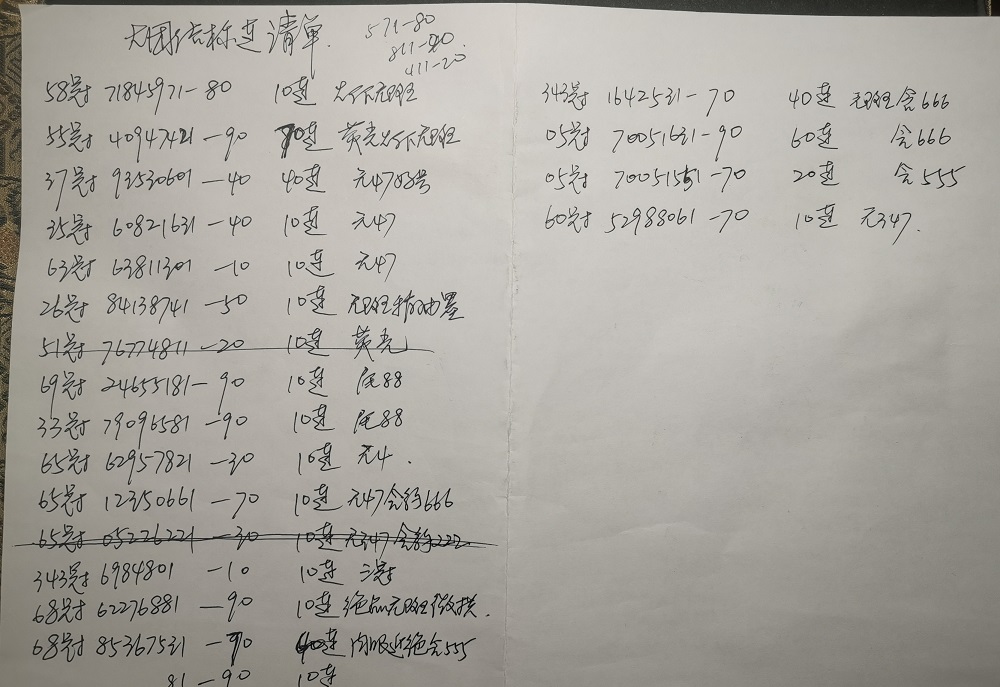 大团结标连清单
571-80
811-90
411-20
58号 71845971-80 10连 火下无斑
55号 40947421-90 10连 荧光火下无斑
37冠 93530601-40 40连 无47好号
35冠 60821631-40 10连 无47
63冠 63811301-10 10连 无47
26冠 84138741-50 10连 无斑
51冠 76774811-20 10连 荧光
69冠 24655181-90 10连 尾88
33冠 79096581-90 10连 尾88
65冠 62957821-30 10连 无4.
65冠 12350661-70 10连 无47含666
65冠 05226221-30 10连 无347含222
343冠 6984801-10 10连 三冠
68冠 62276881-90 10连 绝品无斑微
68冠 85367531-70 40连 绝含555
81-90 10连
343冠 1642531-70 40连 无斑含666
05冠 70051631-90 60连 含666
05冠 70051551-70 20连 含555
60冠 52988061-70 10连 无347.